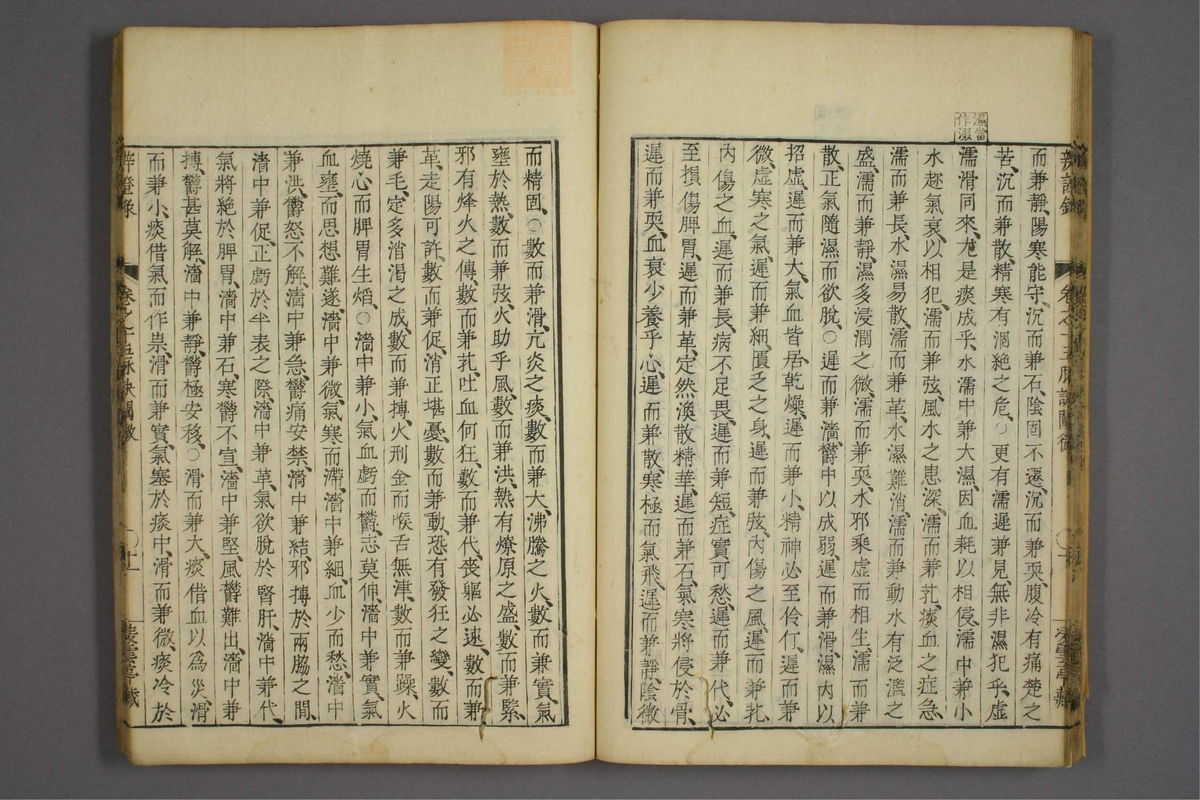 濕當
作澀
而兼靜陽寒能守沉而兼石陰固不遷沉而兼耎腹冷有痛楚之
苦沉而兼散精寒有涸絕之危○更有濡遲兼見無非濕犯乎虛
濡滑同來尤是痰成乎水濡中兼大濕因血耗以相侵濡中兼小
水趂氣衰以相犯濡而兼弦風水之患深濡而兼芤痰血之症急
濡而兼長水濕易散濡而兼革水濕難消濡而兼動水有泛濫之
盛濡而兼靜濕多浸潤之微濡而兼耎水邪乘虛而相生濡而兼
散正氣隨濕而欲脫○遲而兼濇欝中以成弱遲而兼滑濕內以
招虛遲而兼大氣血皆居乾燥遲而兼小精神必至伶仃遲而兼
微虛寒之氣遲而兼細匱乏之身遲而兼弦內傷之風遲而兼芤
內傷之血遲而兼長病不足畏遲而兼短症實可愁遲而兼代必
至損傷脾胃遲而兼革定然渙散精華遲而兼石氣寒將侵於骨
遲而兼耎血衰少養乎心遲而兼散寒極而氣飛遲而兼靜陰微
而精固○數而兼滑亢炎之痰數而兼大沸騰之火數而兼實氣
壅於熱數而兼弦火助乎風數而兼洪熱有燎原之盛數而兼緊
邪有烽火之傳數而兼芤吐血何狂數而兼代喪軀必速數而兼
革走陽可許數而兼促消正堪憂數而兼動恐有發狂之變數而
兼毛定多消渴之成數而兼搏火刑金而喉舌無津數而兼躁火
燒心而脾胃生熖○濇中兼小氣血虧而欝志莫伸濇中兼實氣
血壅而思想難遂濇中兼微氣寒而滯濇中兼細血少而愁濇中
兼洪欝怒不解濇中兼急欝痛安禁濇中兼結邪搏於兩脇之間
濇中兼促正虧於半表之際濇中兼革氣欲脫於腎肝濇中兼代
氣將絕於脾胃濇中兼石寒欝不宣濇中兼堅風欝難出濇中兼
搏欝甚莫解濇中兼靜欝極安移○滑而兼大痰借血以為災滑
而兼小痰借氣而作祟滑而兼實氣塞於痰中滑而兼微痰冷於